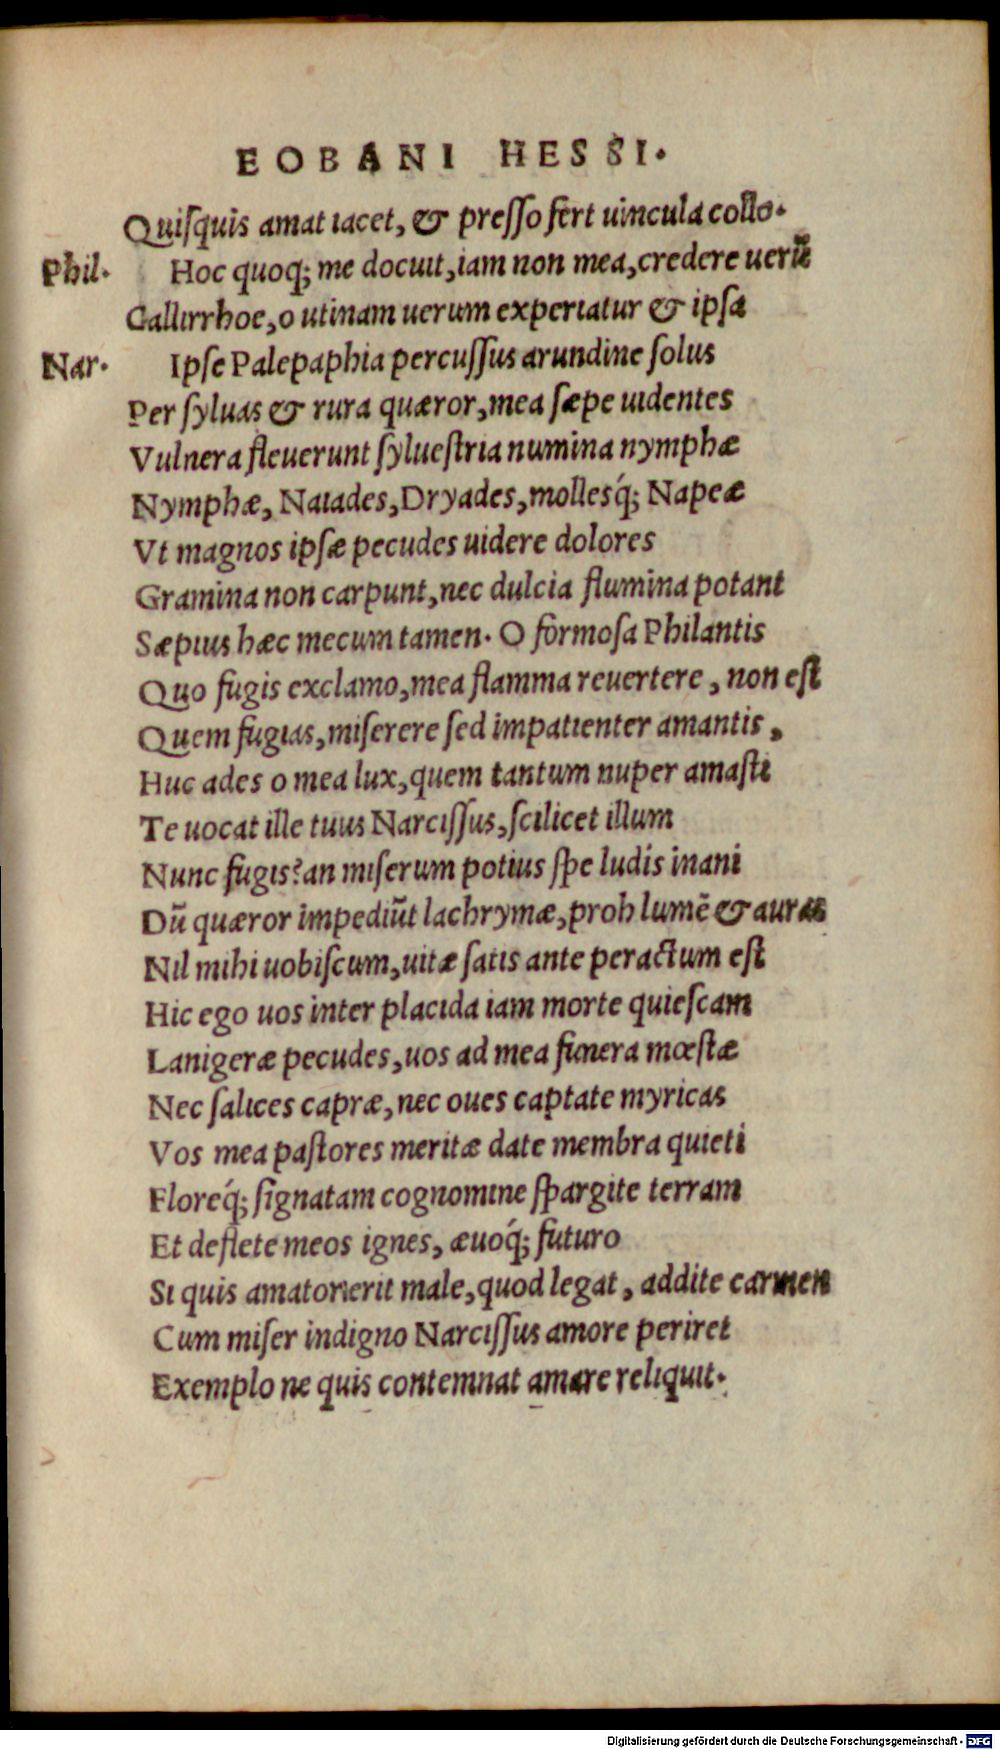 EOBANI HESSI.
Quiſquis amat iacet, & preſſo fert uincula collo.
Phil. Hoc quoq; me docuit, iam non mea, credere uerū
Callirrhoe, o utinam uerum experiatur & ipſa
Nar. Ipſe Palepaphia percuſſus arundine ſolus
Per ſyluas & rura quæror, mea ſæpe uidentes
Vulnera fleuerunt ſylueſtria numina nymphæ
Nymphæ, Naiades, Dryades, molleſq́; Napeæ
Vt magnos ipſæ pecudes uidere dolores
Gramina non carpunt, nec dulcia flumina potant
Sæpius hæc mecum tamen. O formoſa Philantis
Quo fugis exclamo, mea flamma reuertere, non eſt
Quem fugias, miſerere ſed impatienter amantis,
Huc ades o mea lux, quem tantum nuper amaſti
Te uocat ille tuus Narciſſus, ſcilicet illum
Nunc fugis? an miſerum potius ſpe ludis inani
Dū quæror impediūt lachrymæ, proh lumē & auras
Nil mihi uobiſcum, uitæ ſatis ante peractum eſt
Hic ego uos inter placida iam morte quieſcam
Lanigeræ pecudes, uos ad mea funera mœſtæ
Nec ſalices capræ, nec oues captate myricas
Vos mea paſtores meritæ date membra quieti
Floreq́; ſignatam cognomine ſpargite terram
Et deflete meos ignes, æuoq́; futuro
Si quis amator ierit male, quod legat, addite carmen
Cum miſer indigno Narciſſus amore periret
Exemplo ne quis contemnat amare reliquit.
Digitalisierung gefördert durch die Deutsche Forschungsgemeinschaft - DFG